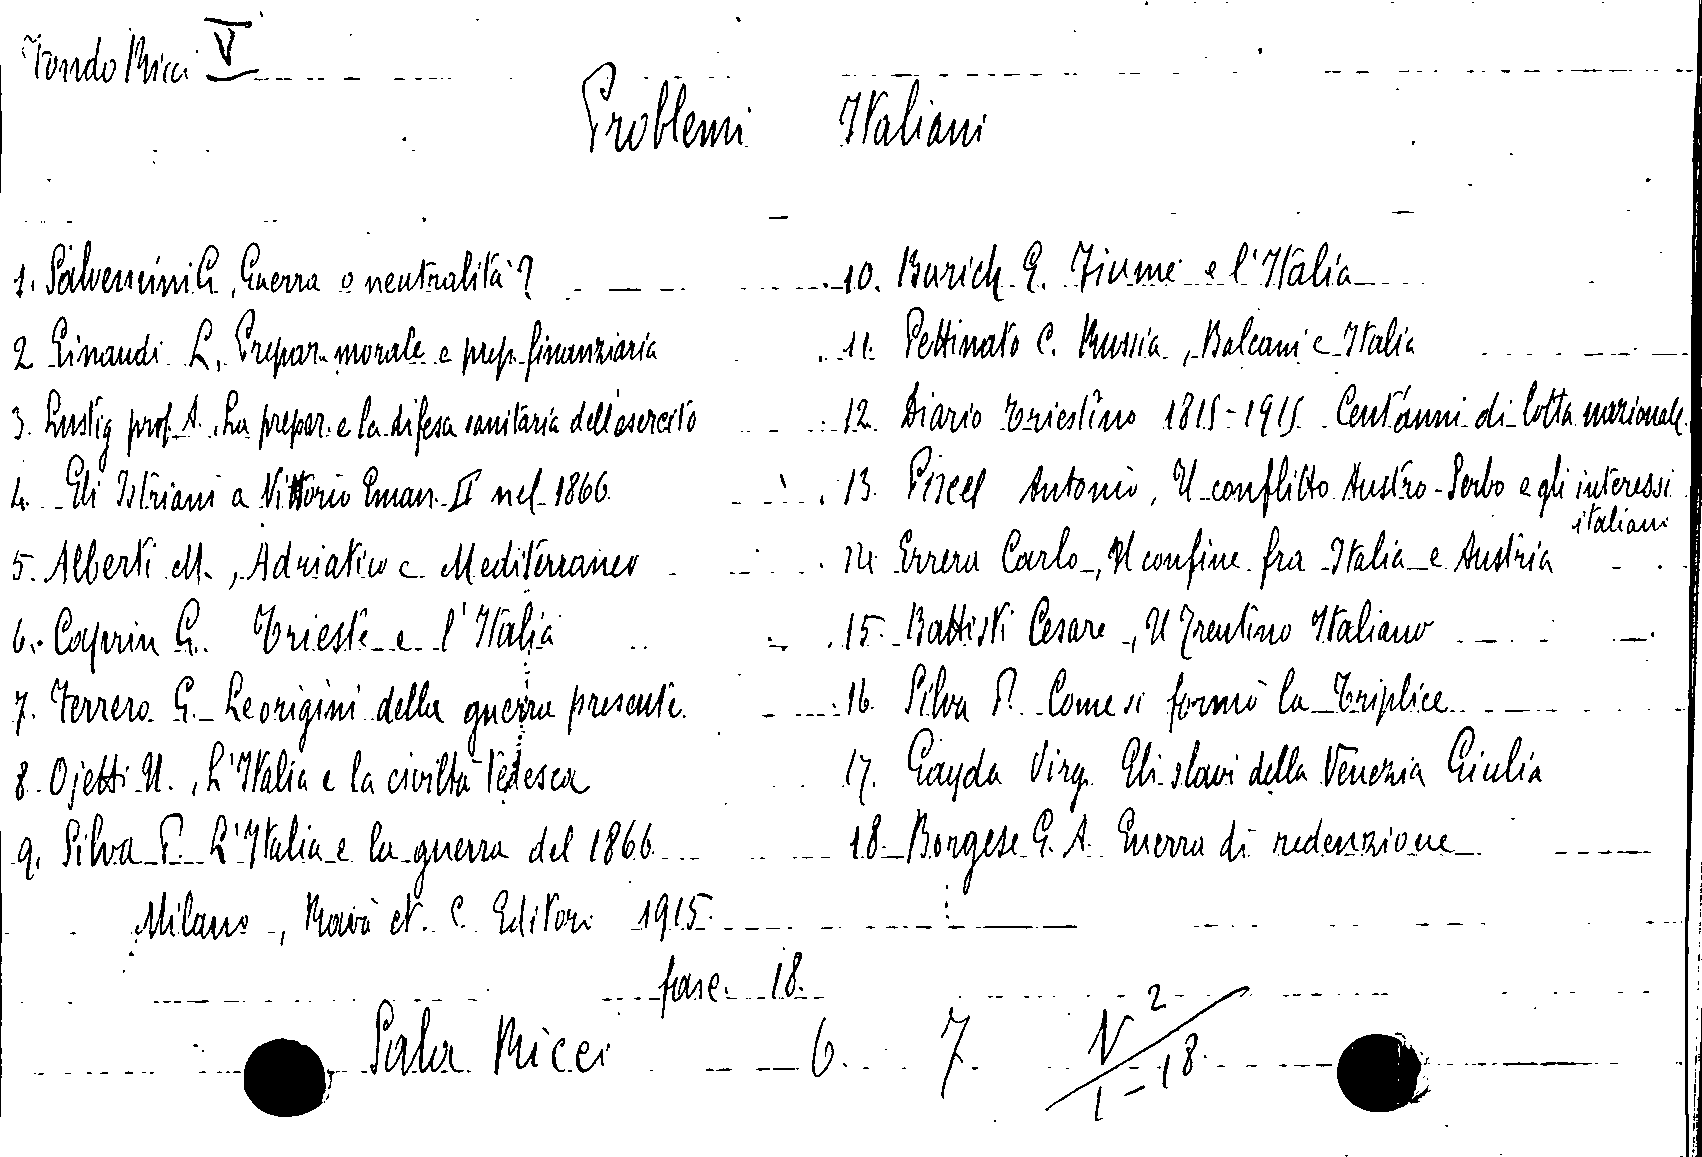 Fondo Ricci V
Problemi Italiani
1. Salvemini G, Guerra o neutralità?
2 Einaudi L, Prepar. morale e prep. finanziaria
3. Lustig prof. A. La prepar. e la difesa sanitaria dell'esercito
4. Gli Istriani a Vittorio Eman. II nel 1866
5. Alberti M., Adriatico e Mediterraneo
6. Caprin G. Trieste e l'Italia
7. Ferrero G. Le origini della guerra presente
8. Ojetti U., L'Italia e la civiltà Tedesca
9. Silva P. L'Italia e la guerra del 1866
10. Burich E. Fiume e l'Italia
11. Pettinato C. Russia, Balcani e Italia
12. Diario triestino 1815-1915 Cent'anni di lotta nazionale
13. Piscel Antonio, Il conflitto Austro-Serbo e gli interessi
italiani
14 Errera Carlo, Il confine fra Italia e Austria
15. Battisti Cesare, Il Trentino Italiano
16. Silva P. Come si formò la Triplice
17. Gayda Virg. Gli slavi della Venezia Giulia
18. Borgese G. A. Guerra di redenzione
Milano, Ravà et. C. Editori 1915
fasc. 18.
Sala Ricci 6. 7 V 2 / 1-18